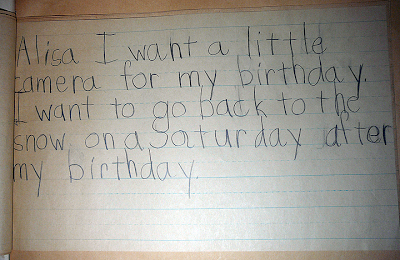 Alisa I want a little
camera for my birthday.
I want to go back to the
snow on a Saturday after
my birthday.